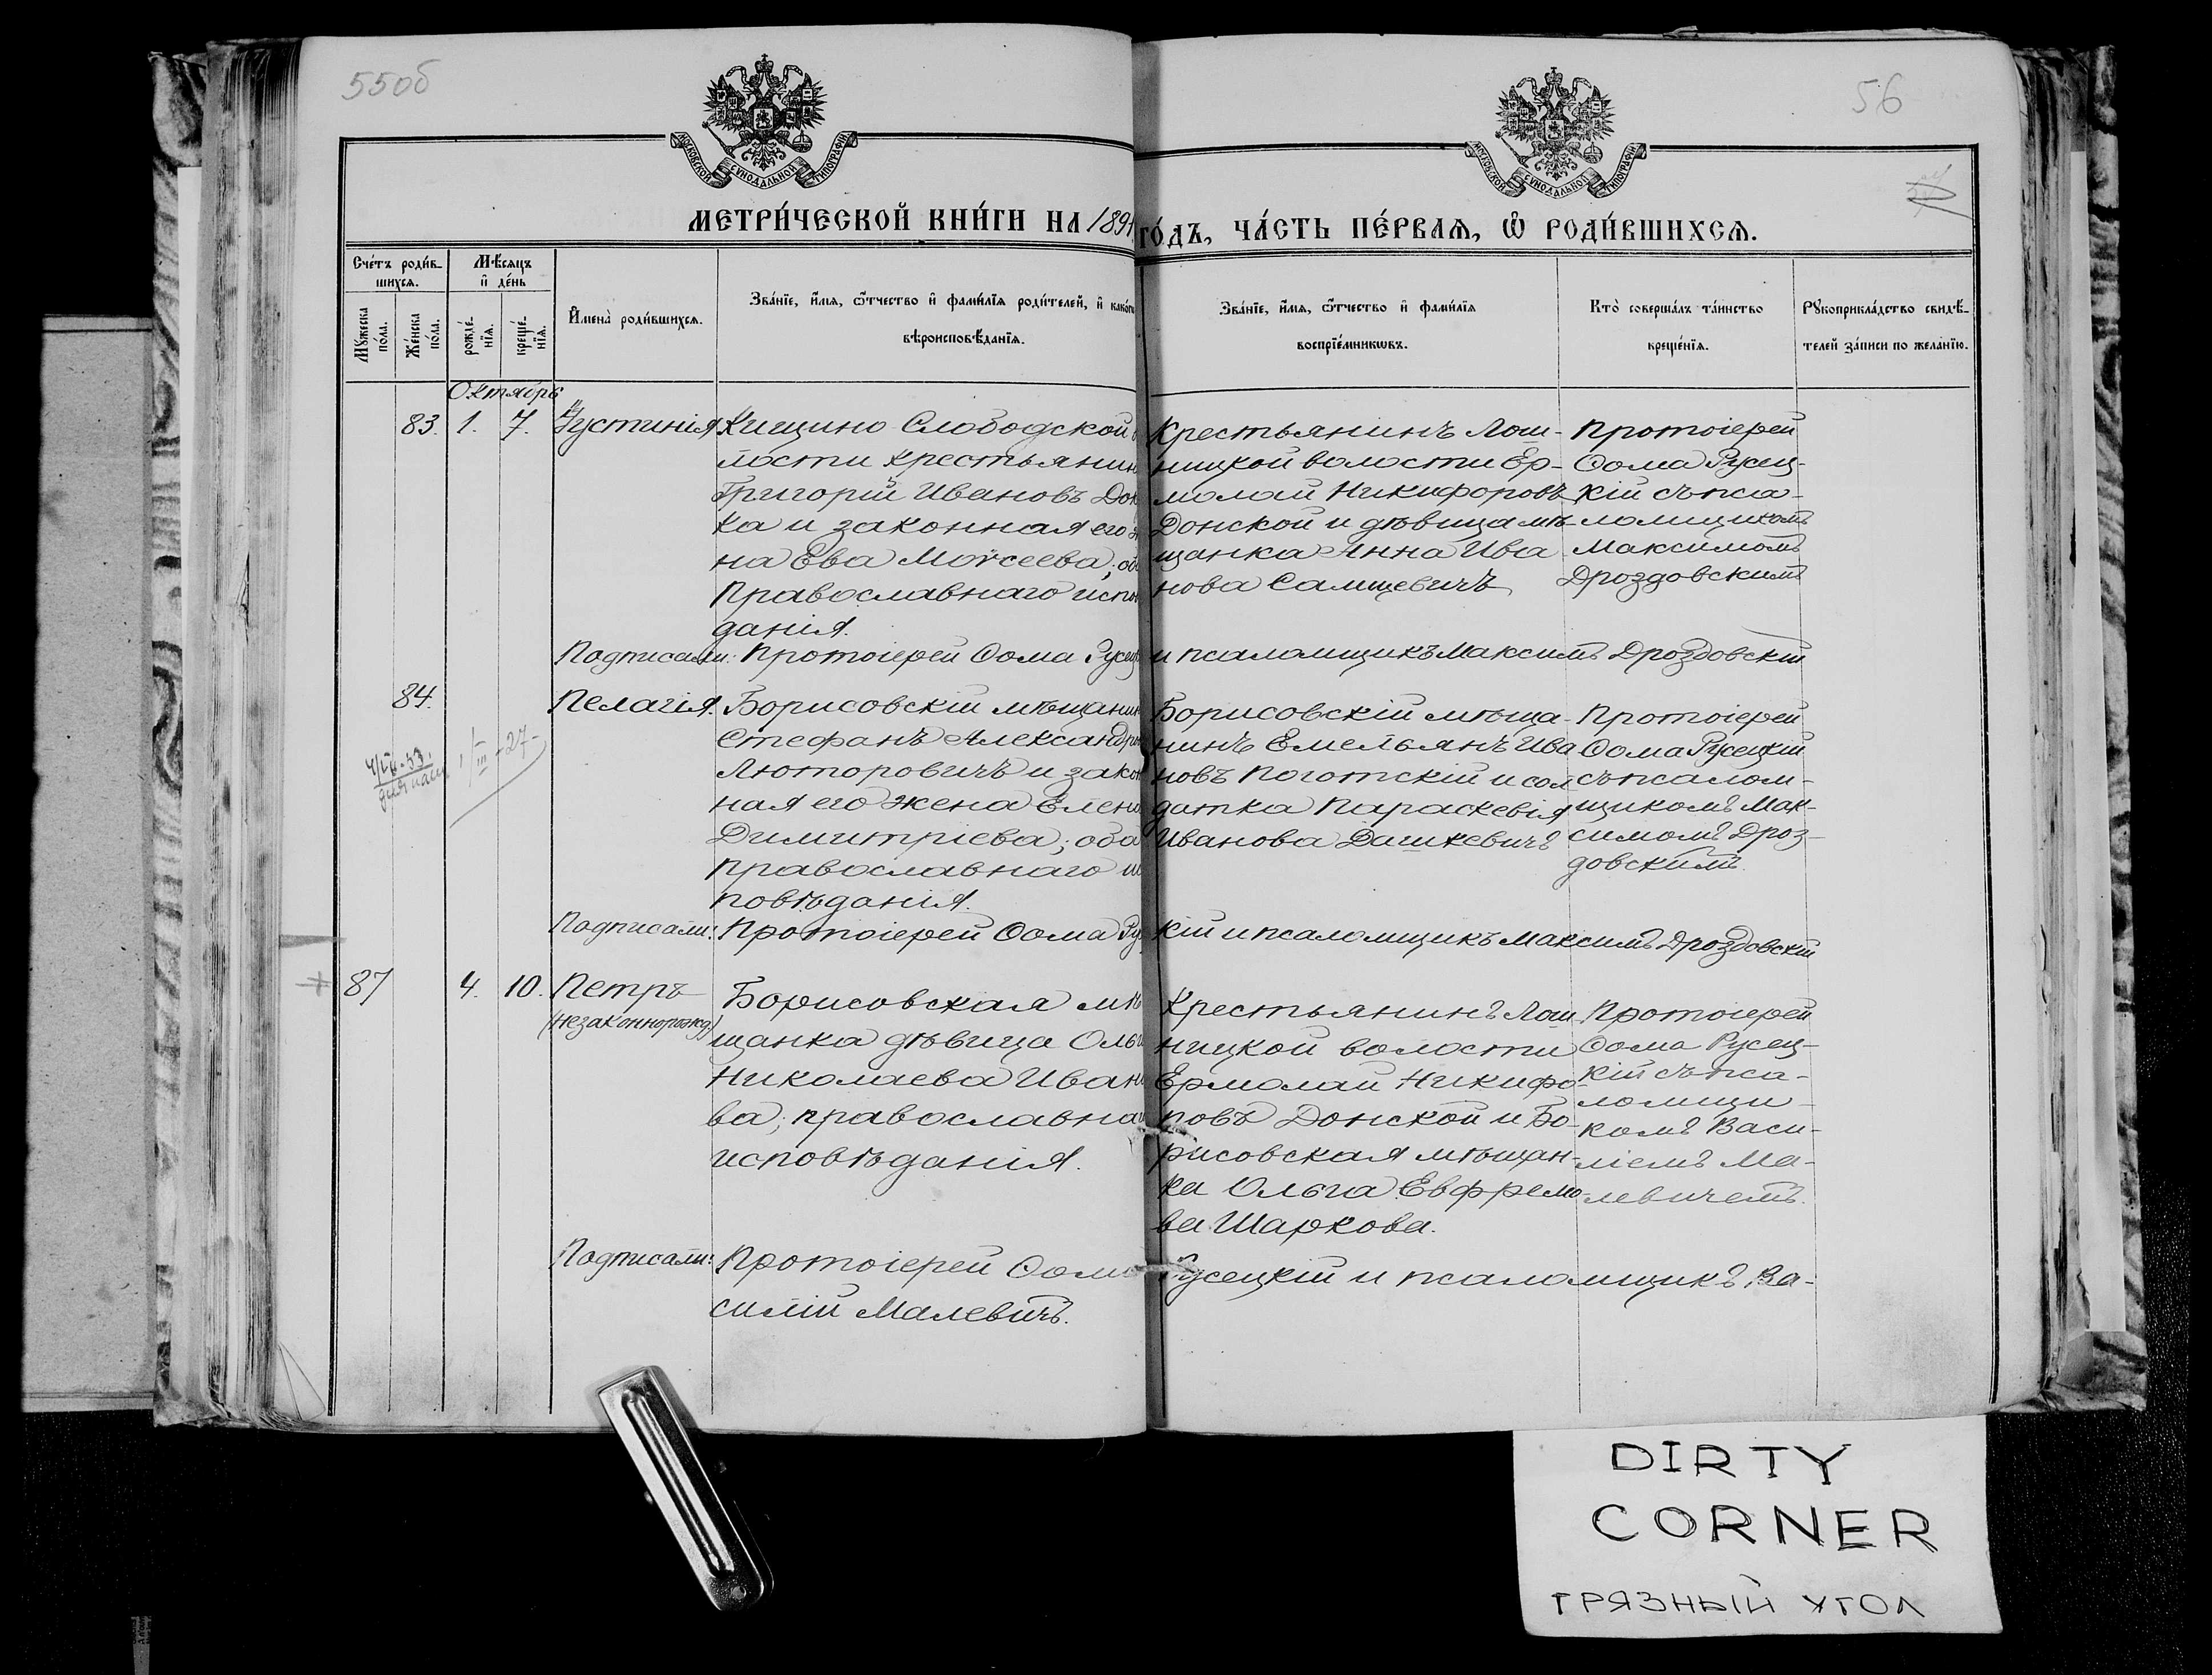 55об
56
МОСКОВСКОЙ СѴНОДАЛЬНОЙ ТИПОГРАФІИ
МОСКОВСКОЙ СѴНОДАЛЬНОЙ ТИПОГРАФІИ
МЕТРИ́ЧЕСКОЙ КНИ́ГИ НА 1891
ГО́ДЪ, ЧА́СТЬ ПЕ́РВАѦ, Ѽ РОДИ́ВШИХСѦ.
Сче́тъ роди́в-
шихсѧ.
Мѣ́сѧцъ
и҆ де́нь
Мꙋ́жеска
по́ла.
Же́нска
по́ла.
рожде́-
нїѧ.
креще́-
нїѧ.
И҆мена̀ роди́вшихсѧ.
Зва́нїе, и҆́мѧ, ѻ҆́тчество и҆ фами́лїѧ роди́телей, и҆ како́гѡ
вѣроисповѣ́данїѧ.
Зва́нїе, и҆́мѧ, ѻ҆́тчество и҆ фами́лїѧ
воспрїе́мникѡвъ.
Кто̀ соверша́лъ та́инство
креще́нїѧ.
Рꙋкоприкла́дство свидѣ́-
телей за́писи по жела́нїю.
Октябрь
83. 1. 7. Іустинія
Кищино Слободской
лости крестьянин
Григорій Ивановъ Дон
ка и законная его
на Ева Моѵсеева; об
Православнаго испов
данія.
Крестьянинъ Лош-
ницкой волости Ер-
молай Никифоровъ
Донской и дѣвица мѣ-
щанка Анна Ива
нова Самцевичъ
Протоіерей
Ѳома Русец-
кій съ пса-
ломщикомъ
Максимомъ
Дроздовскимъ
Подписали: Протоіерей Ѳома Русец и псаломщикъ Максимъ Дроздовскій
84. Пелагія.
4/IV-53.
1/III-27-
Борисовскій мѣщанин
Стефанъ Александро
Люторовичъ и закон
ная его жена Елена
Димитріева; оба
православнаго ис
повѣданія.
Борисовскій мѣща-
нинъ Емельянъ Ива
новъ Поготскій и сол
датка Параскевія
Иванова Дашкевичъ
Протоіерей
Ѳома Русецкій
съ псалом-
щикомъ Мак-
симомъ Дроз-
довскимъ.
Подписали: Протоіерей Ѳома Ру кій и псаломщикъ Максимъ Дроздовскій
87 4. 10. Петръ
(незаконнорожд.)
Борисовская мѣ
щанка дѣвица Ольга
Николаева Ивано
ва; православнаго
исповѣданія.
Крестьянинъ Лош
ницкой волости
Ермолай Никифо-
ровъ Донской и Бо-
рисовская мѣщан-
ка Ольга Евфремо-
ва Шаркова.
Протоіерей
Ѳома Русец-
кій съ пса-
ломщи-
комъ Васи-
ліемъ Ма-
левичемъ.
Подписали: Протоіерей Ѳома Русецкій и псаломщикъ Ва-
силій Малевичъ.
DIRTY
CORNER
ГРЯЗНЫЙ УГОЛ